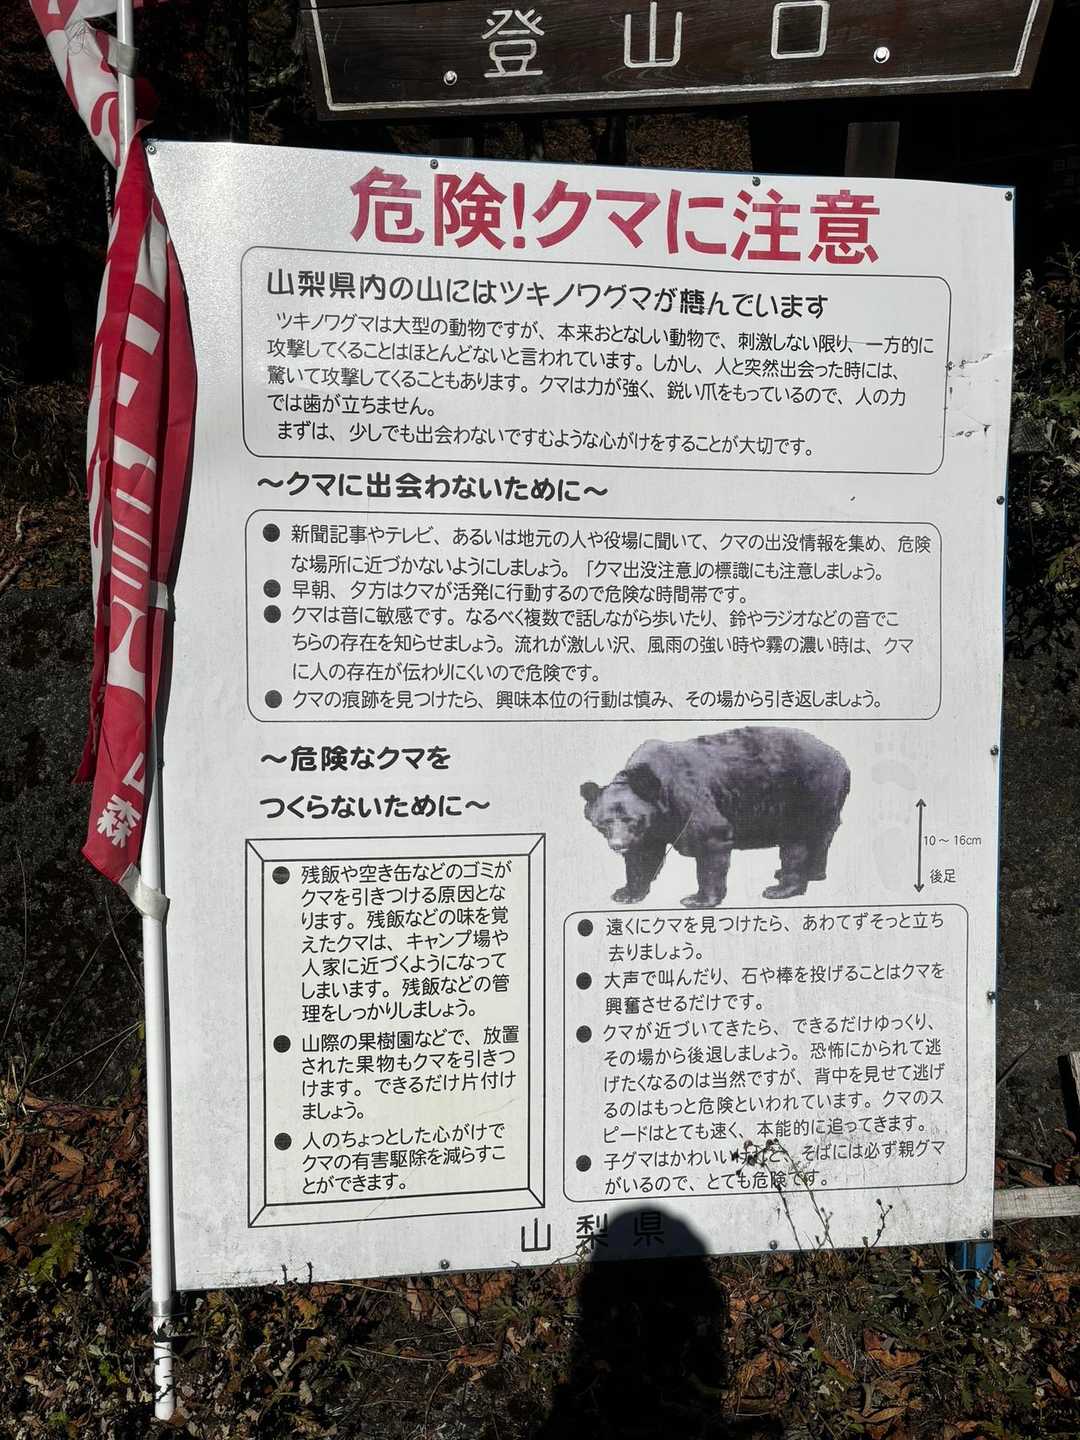 登山口
危険!クマに注意
山梨県内の山にはツキノワグマが棲んでいます
ツキノワグマは大型の動物ですが、本来おとなしい動物で、刺激しない限り、一方的に
攻撃してくることはほとんどないと言われています。しかし、人と突然出会った時には、
驚いて攻撃してくることもあります。クマは力が強く、鋭い爪をもっているので、人の力
では歯が立ちません。
まずは、少しでも出会わないですむような心がけをすることが大切です。
～クマに出会わないために～
●新聞記事やテレビ、あるいは地元の人や役場に聞いて、クマの出没情報を集め、危険
な場所に近づかないようにしましょう。「クマ出没注意」の標識にも注意しましょう。
●早朝、夕方はクマが活発に行動するので危険な時間帯です。
●クマは音に敏感です。なるべく複数で話しながら歩いたり、鈴やラジオなどの音でこ
ちらの存在を知らせましょう。流れが激しい沢、風雨の強い時や霧の濃い時は、クマ
に人の存在が伝わりにくいので危険です。
●クマの痕跡を見つけたら、興味本位の行動は慎み、その場から引き返しましょう。
～危険なクマを
つくらないために～
●残飯や空き缶などのゴミが
クマを引きつける原因とな
ります。残飯などの味を覚
えたクマは、キャンプ場や
人家に近づくようになって
しまいます。残飯などの管
理をしっかりしましょう。
●山際の果樹園などで、放置
された果物もクマを引きつ
けます。できるだけ片付け
ましょう。
●人のちょっとした心がけで
クマの有害駆除を減らすこ
とができます。
10～16cm
後足
●遠くにクマを見つけたら、あわてずそっと立ち
去りましょう。
●大声で叫んだり、石や棒を投げることはクマを
興奮させるだけです。
●クマが近づいてきたら、できるだけゆっくり、
その場から後退しましょう。恐怖にかられて逃
げたくなるのは当然ですが、背中を見せて逃げ
るのはもっと危険といわれています。クマのス
ピードはとても速く、本能的に追ってきます。
●子グマはかわいいけれど、そばには必ず親グマ
がいるので、とても危険です。
山梨県
森